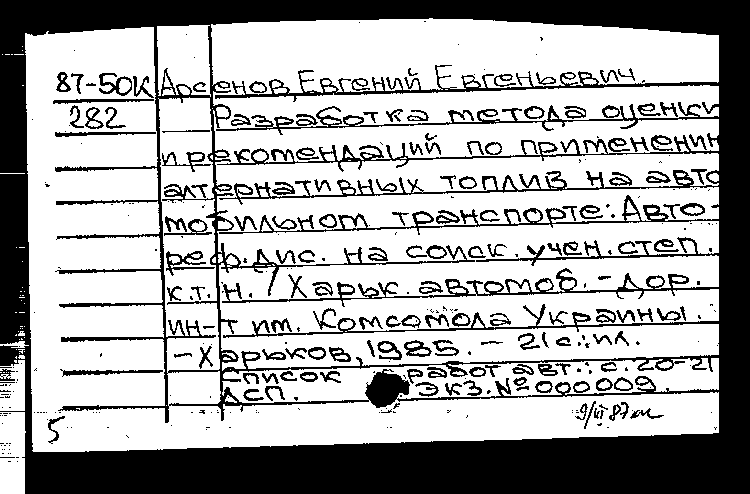 87-50К Арсенов, Евгений Евгеньевич.
282 Разработка метода оценки
и рекомендаций по применению
алтернативных топлив на авто
мобильном транспорте: Авто-
реф. дис. на соиск. учен. степ.
к.т.н. / Харьк. автомоб. - дор.
ин-т им. Комсомола Украины.
- Харьков, 1985. - 21 с.: ил.
Список работ авт.: с. 20-21
ДСП. Экз. № 000009.
5